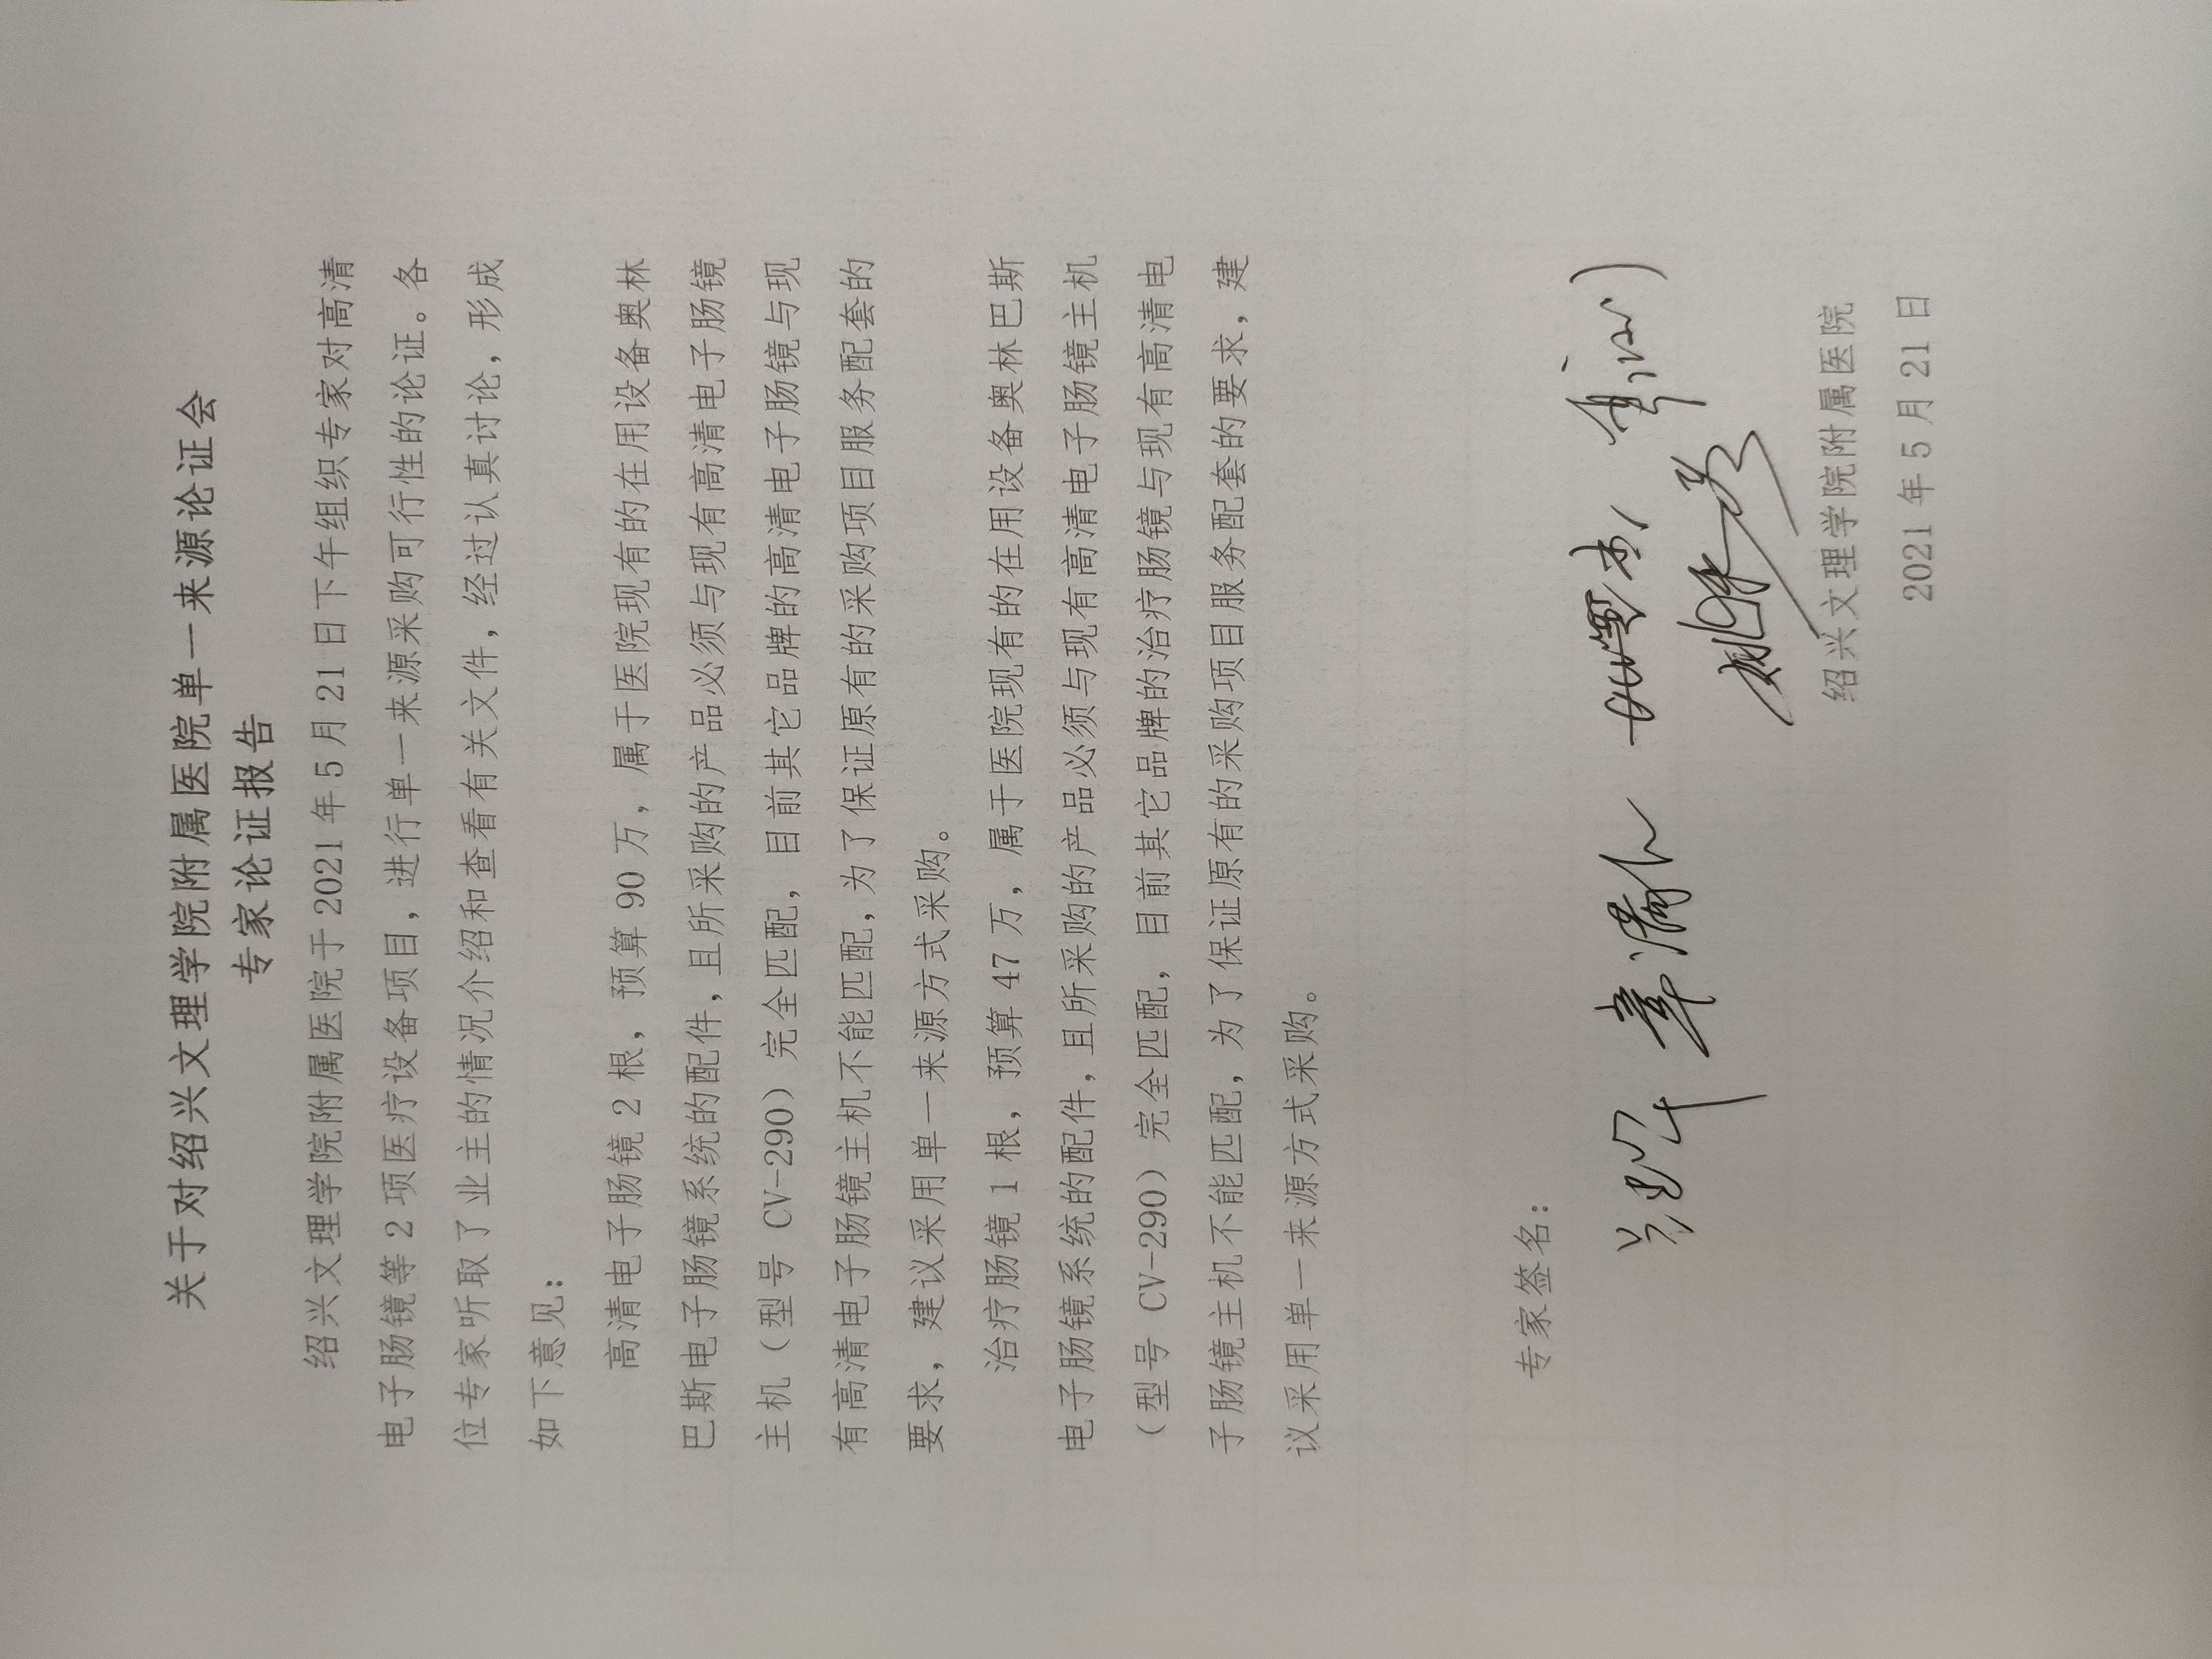 关于对绍兴文理学院附属医院单一来源论证会
专家论证报告
绍兴文理学院附属医院于 2021 年 5 月 21 日下午组织专家对高清
电子肠镜等 2 项医疗设备项目，进行单一来源采购可行性的论证。各
位专家听取了业主的情况介绍和查看有关文件，经过认真讨论，形成
如下意见：
高清电子肠镜 2 根，预算 90 万，属于医院现有的在用设备奥林
巴斯电子肠镜系统的配件，且所采购的产品必须与现有高清电子肠镜
主机（型号 CV-290）完全匹配，目前其它品牌的高清电子肠镜与现
有高清电子肠镜主机不能匹配，为了保证原有的采购项目服务配套的
要求，建议采用单一来源方式采购。
治疗肠镜 1 根，预算 47 万，属于医院现有的在用设备奥林巴斯
电子肠镜系统的配件，且所采购的产品必须与现有高清电子肠镜主机
（型号 CV-290）完全匹配，目前其它品牌的治疗肠镜与现有高清电
子肠镜主机不能匹配，为了保证原有的采购项目服务配套的要求，建
议采用单一来源方式采购。
专家签名：
绍兴文理学院附属医院
2021 年 5 月 21 日